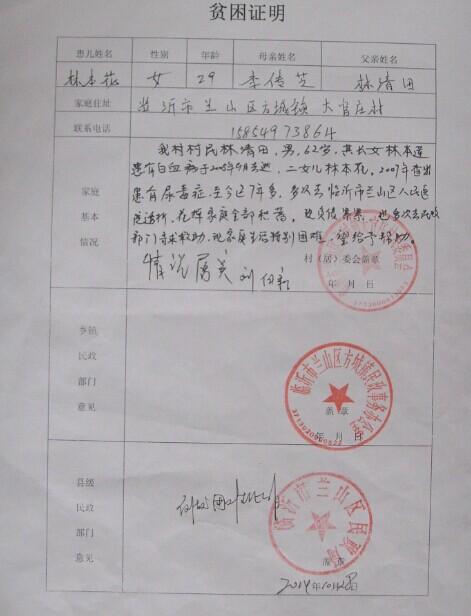 贫困证明
患儿姓名 性别 年龄 母亲姓名 父亲姓名
林本花 女 29 李传芝 林清田
家庭住址 临沂市兰山区方城镇大官庄村
联系电话 15854973864
家庭基本情况
我村村民林清田，男，62岁，其长女林本莲
患有白血病于2005年9月去逝，二女儿林本花，2007年查出
患有尿毒症，至今已7年多，多次去临沂市兰山区人民医
院透析，花掉家庭全部积蓄，也多次去民政
部门寻求救助，现家庭生活特别困难，望给予帮助。
情况属实
村（居）委会盖章
年 月 日
乡镇民政部门意见
临沂市兰山区方城镇民政事务办公室
盖章
年 月 日
县级民政部门意见
临沂市兰山区民政局
盖章
2014年10月28日